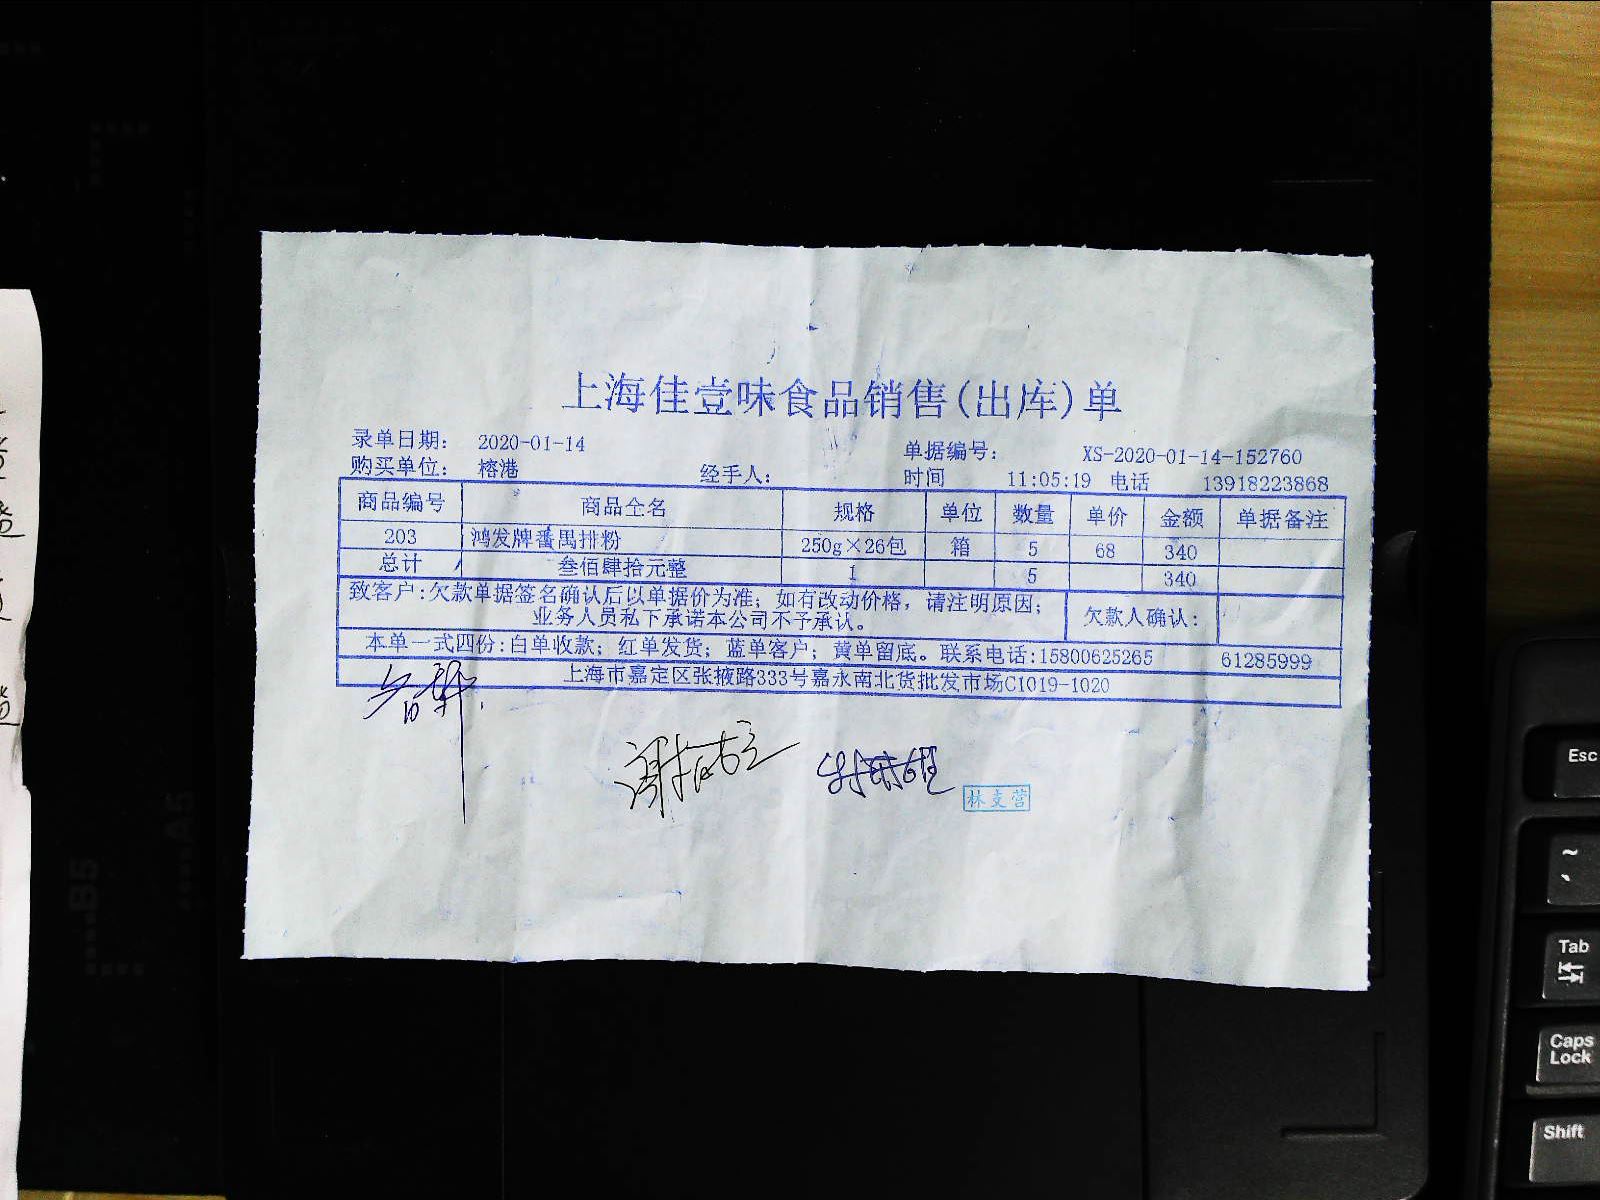 上海佳壹味食品销售(出库)单
录单日期: 2020-01-14 单据编号: XS-2020-01-14-152760
购买单位: 榕港 经手人: 时间 11:05:19 电话 13918223868
商品编号 商品全名 规格 单位 数量 单价 金额 单据备注
203 鸿发牌番禺排粉 250g×26包 箱 5 68 340
总计 叁佰肆拾元整 1 5 340
致客户:欠款单据签名确认后以单据价为准；如有改动价格，请注明原因；
业务人员私下承诺本公司不予承认。 欠款人确认:
本单一式四份:白单收款；红单发货；蓝单客户；黄单留底。联系电话:15800625265 61285999
上海市嘉定区张掖路333号嘉永南北货批发市场C1019-1020
林支营
Esc
~
Tab
Caps Lock
Shift
B5
A5